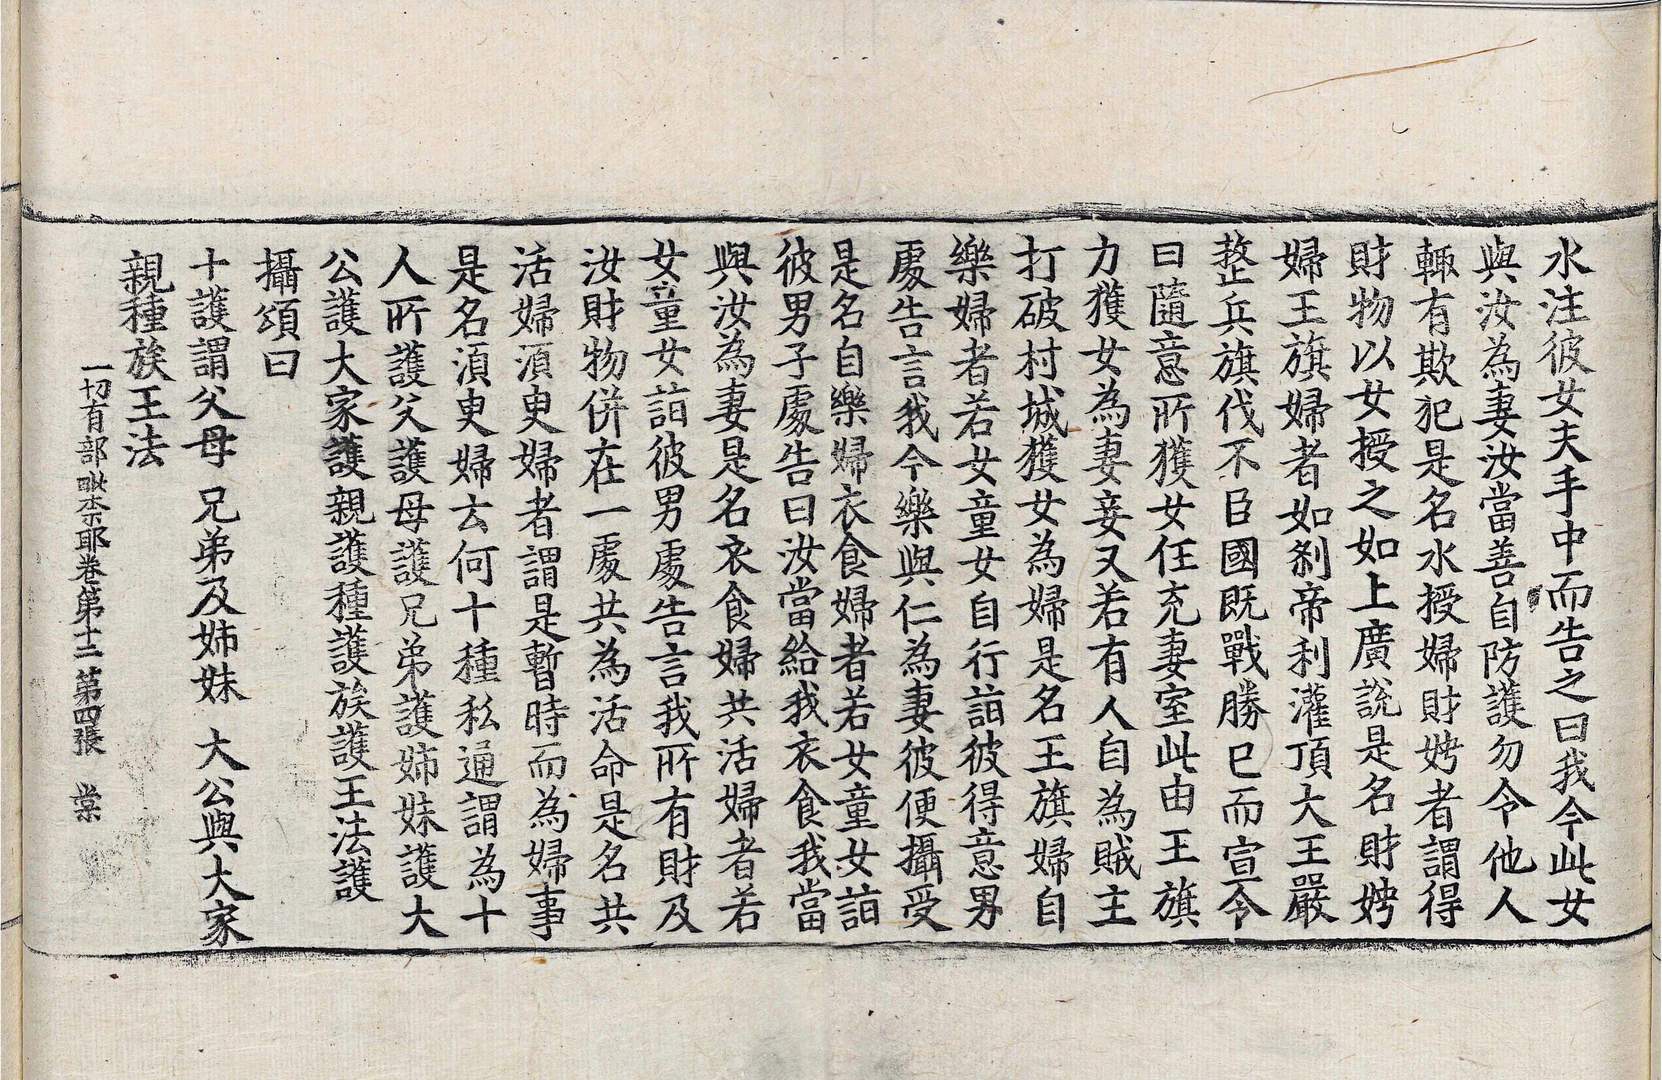 水注彼女夫手中而告之曰我今此女
與汝為妻汝當善自防護勿令他人
輒有欺犯是名水授婦財娉者謂得
財物以女授之如上廣說是名財娉
婦王旗婦者如剎帝利灌頂大王嚴
整兵旗伐不臣國既戰勝已而宣令
曰隨意所獲女任充妻室此由王旗
力獲女為妻妾又若有人自為賊主
打破村城獲女為婦是名王旗婦自
樂婦者若女童女自行詣彼得意男
處告言我今樂與仁為妻彼便攝受
是名自樂婦衣食婦者若女童女詣
彼男子處告曰汝當給我衣食我當
與汝為妻是名衣食婦共活婦者若
女童女詣彼男處告言我所有財及
汝財物併在一處共為活命是名共
活婦須臾婦者謂是暫時而為婦事
是名須臾婦云何十種私通謂為十
人所護父護母護兄弟護姊妹護大
公護大家護親護種護族護王法護
攝頌曰
十護謂父母 兄弟及姊妹 大公與大家
親種族王法
一切有部毗柰耶卷第十二 第四張 棠